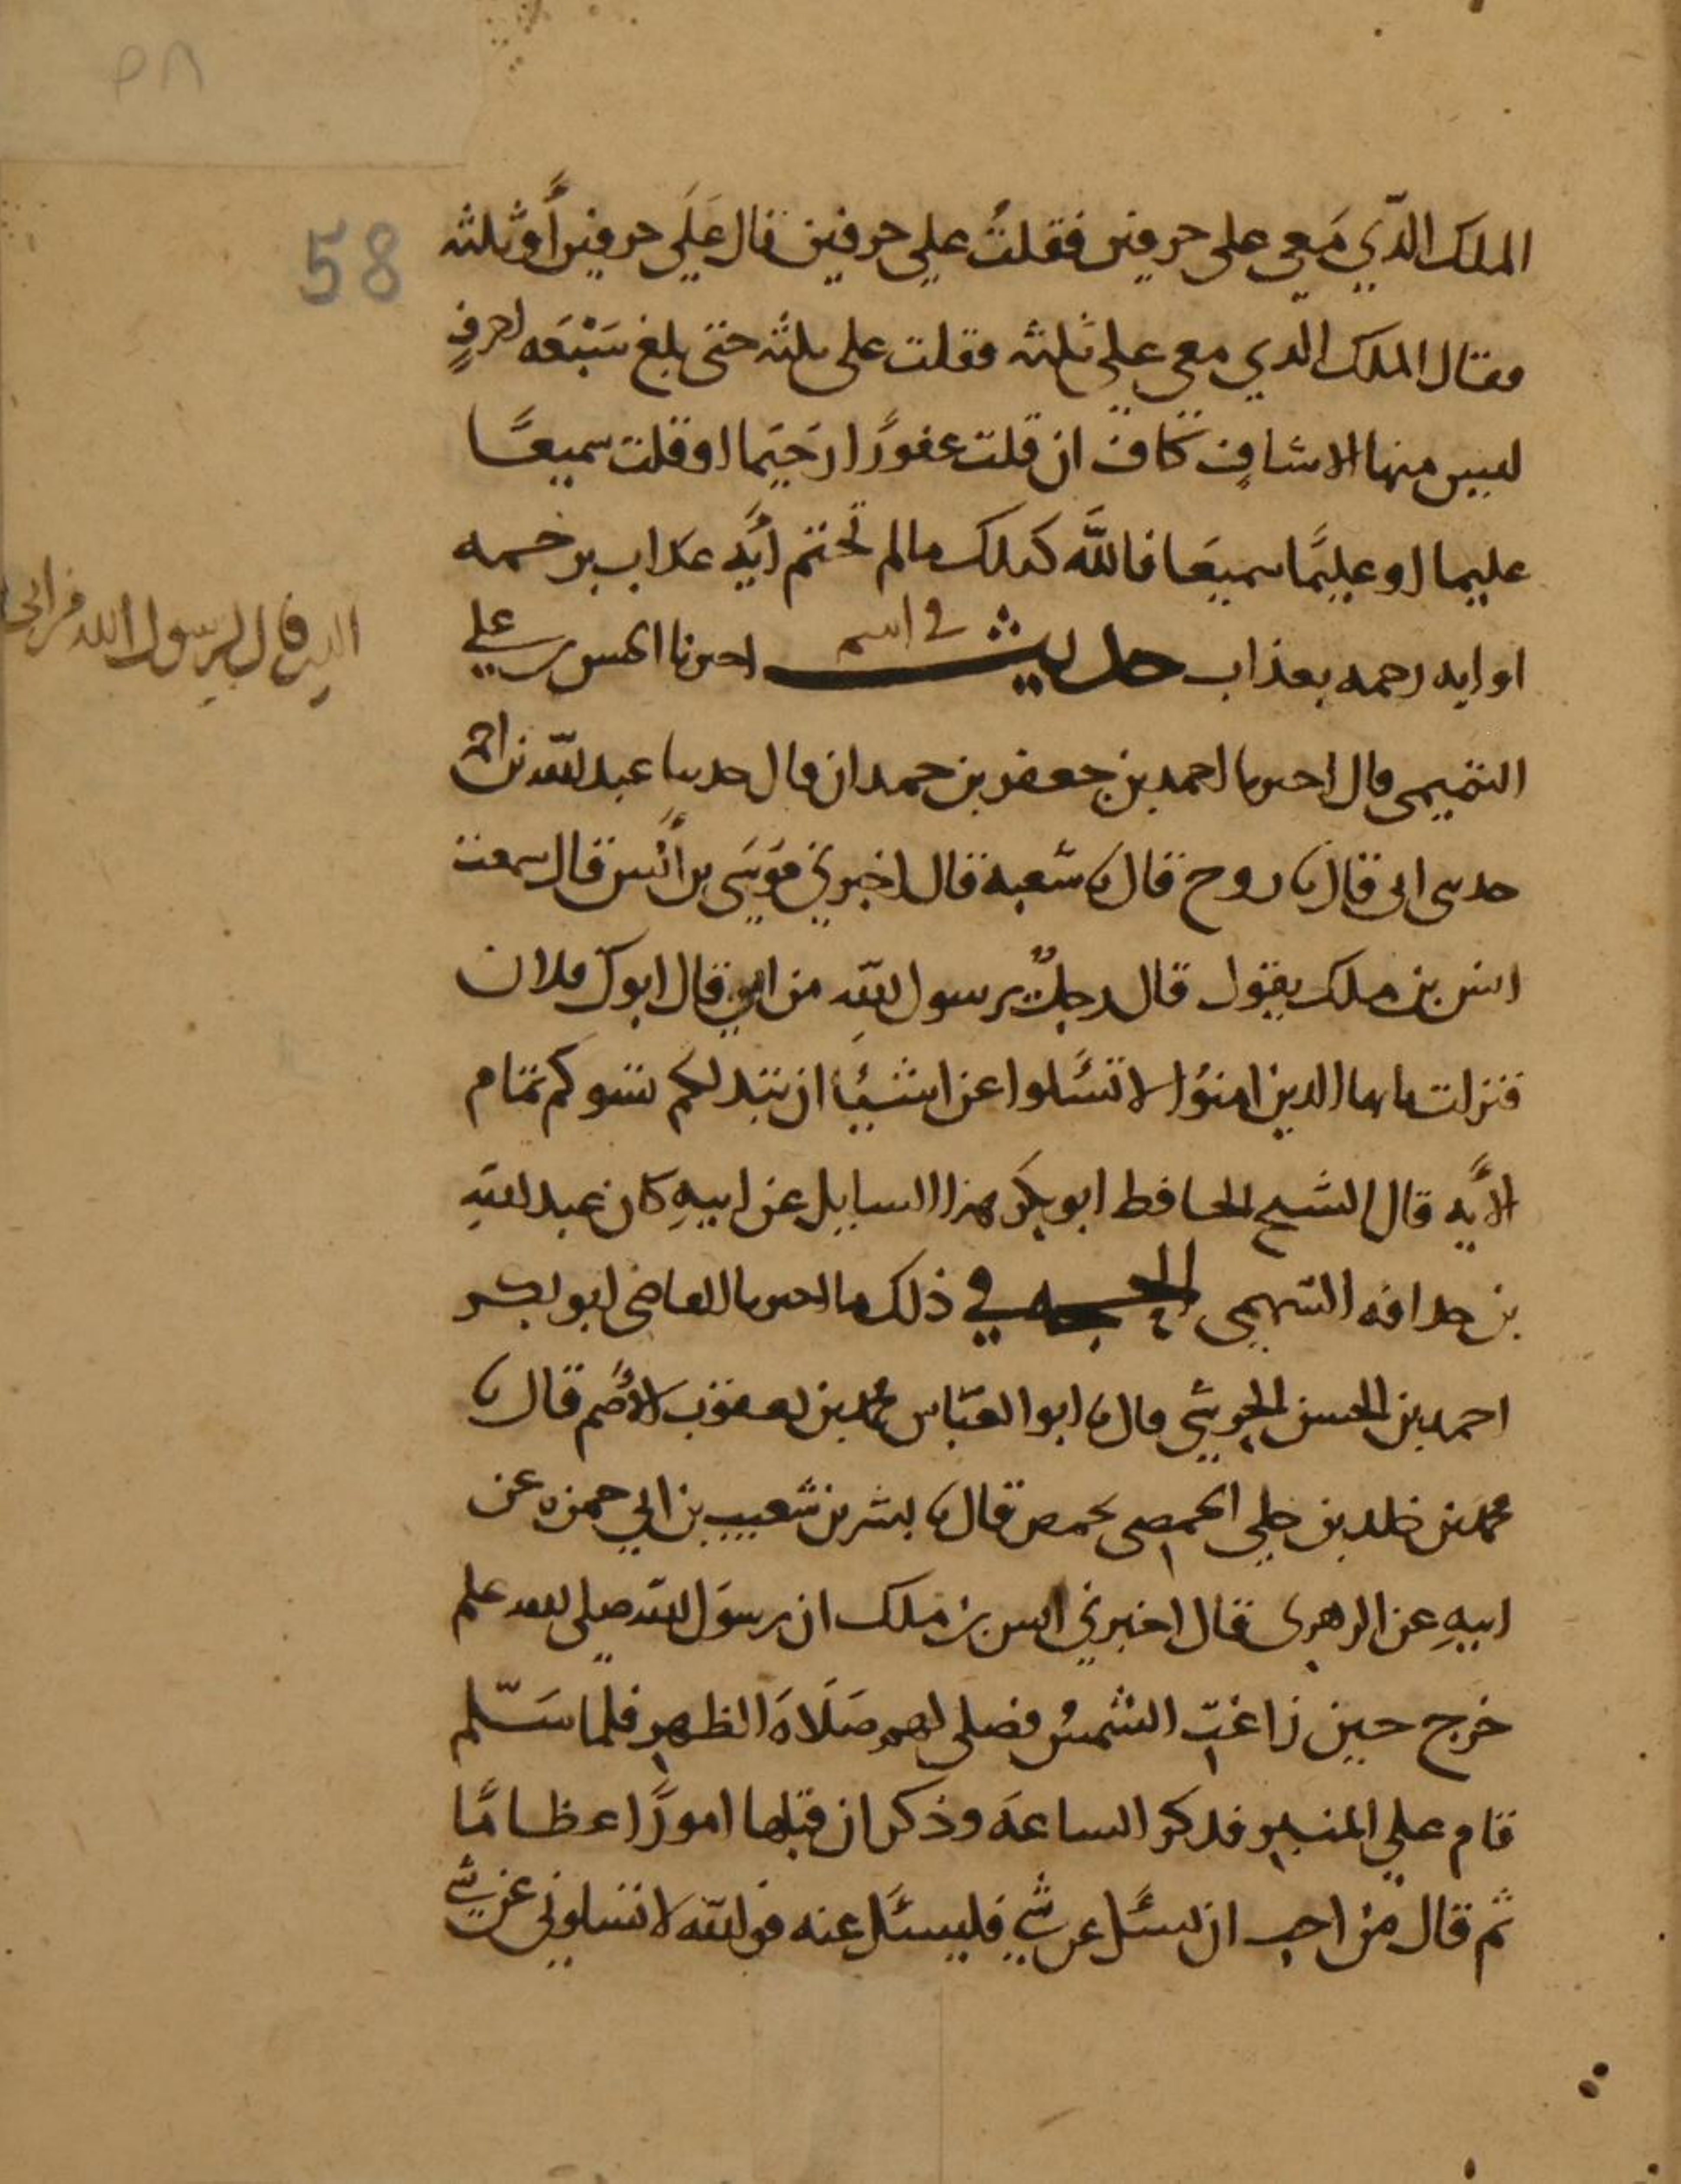 58
الملك الذي معي على حرفين فقلتُ علي حرفين قال عَلَي حرفين أو ثلثه
فقال الملك الدي معي علي ثلثه فقلت على ثلثه حتى بلغ سَبْعَه احرفٍ
ليس منها الا شافٍ كافٍ ان قلت غفورًا رَحيمَا او قلت سميعًا
عليما او عليمًا سميعَا فاللَّه كذلك مالم تختم أيه عذاب برحمه
او ايه رحمه بعذاب حديث في اسم اخبرنا الحسن بن علي
الذي قال لرسول الله من ابي
التميمي قال اخبرنا احمد بن جعفر بن حمدان قال حدثنا عبد اللّه بن احمد
حدثني ابي قال نا روح قال نا شعبه قال اخبرني مَوسَى بن أنس قال سمعت
انس بن ملك يقول قال رجلٌ يرسول اللّهِ من ابي قال ابوك فلان
فنزلت يا يها الدين امنوُا لا تسئَلوا عن اشيُا ان تبد لكم تسوكم تمام
الأَيه قال الشيخ الحافظ ابو بكر هذا السايل عن ابيهِ كان عبد اللهِ
بن حذافه السّهمي الحجه في ذلك ما اخبرنا القاضي ابو بكر
احمد بن الحسن الحرشي قال نا ابو العبّاس محمد بن يعقوب الأصَم قال نا
محمد بن خلد بن خلي الحمصي بحمص قال نا بشر بن شعيب بن ابي حمزه عن
ابيهِ عن الزهري قال اخبرني انس بن ملك ان رسوَل اللّه صلى الله علم
خرج حين زاغتِ الشمسُ فصلى لهم صَلَاةَ الظهرِ فلما سَلّم
قام علي المنبرِ فذكر الساعهَ وذكر ان قبلها امورًا عظامًا
ثم قال من احب ان يسئَل عن شيٍ فليسئَل عنه فو اللّه لا تسلوني عن شيٍ